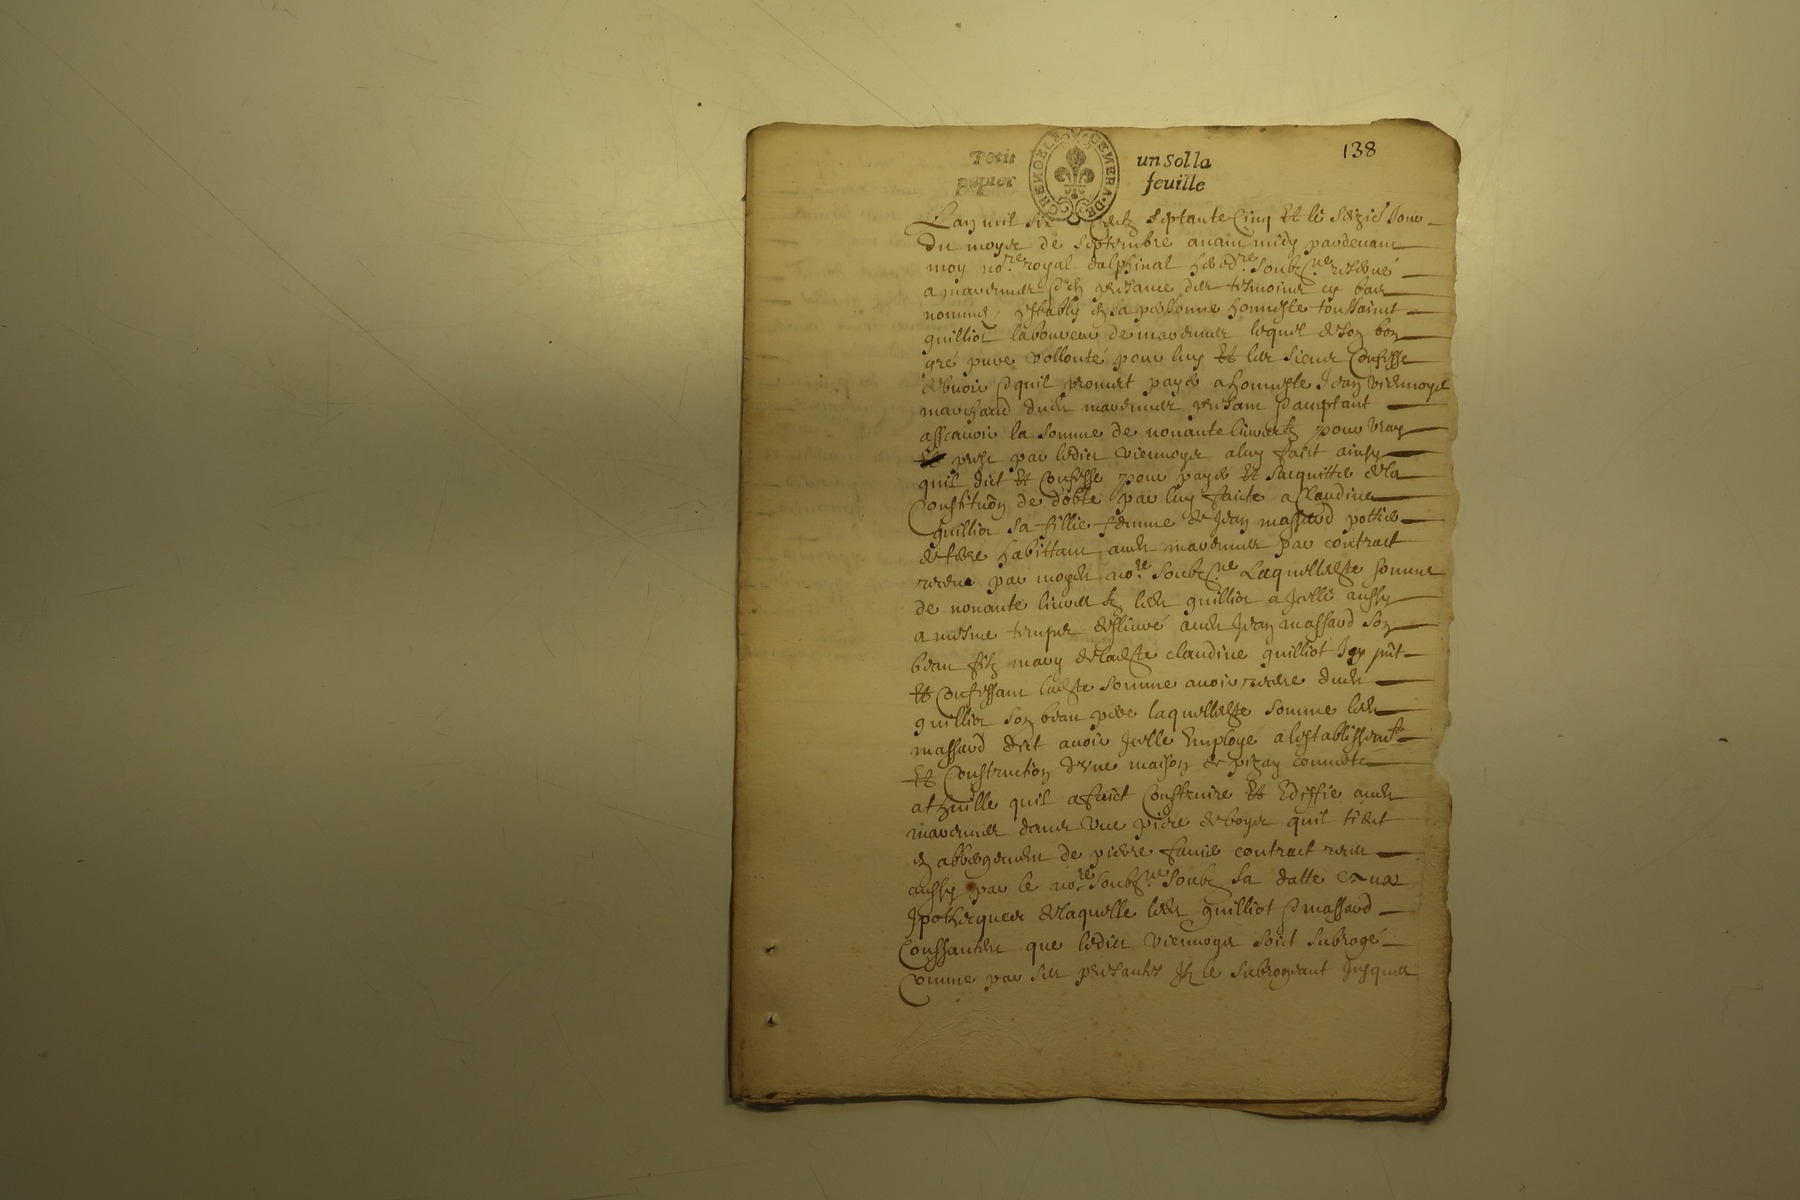 138
Petit
papier
GENERA·DE GRENOBLE
un Sol la
feuille
Lan mil six centz septante Cinq Et le seizie Jour
du moys de septembre auant midy pardeuant
moy no.re royal dalphinal hered.re soubz.ne reserué
a mauernes en presance des tesmoins cy bas
nommes establys en sa personne honneste toussainct
guilliot laboureur de mauernes lequel de son bon
gré pure vollonté pour luy Et les siens Confesse
debuoir quil promet payer a honneste Jean viennoys
marchand dud mauernes presant acceptant
asscauoir la somme de nonante liures tz pour vray
prest par ledict viennoys a luy faict ainsy
quil dict Et Confesse pour payer Et sacquitter de la
Constituon de dotte par luy faicte a Claudine
guilliot sa fillie femme de Jean massard pottier
de terre habittant aud mauernes par contract
receu par moyd no.re soubz.ne Laquelle somme
de nonante liures tz led guilliot a Jcelle aussy
a mesme temps desliuré aud Jean massard son
beau filz mary de lad claudine guilliot Jcy pnt
Et Confessant lad somme auoir receue dud
guilliot son beau pere laquelle somme led
massard dict auoir Jcelle Employé a lestablissemt
Et Construction dvne maison de pizay couuerte
a thuille quil a faict Construire Et Ediffie aud
mauernes dans vne piece de boys quil tient
en abbergement de pierre contract receu
aussy par le no.re soubz.ne soubz sa datte
Jpothecques de laquelle led guilliot massard
Conssantent que ledict viennoys soict subrogé
comme par ses presantes Jlz le subrogeant Jusques